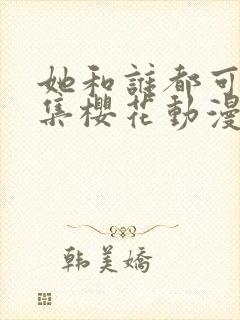 她和誰都可
集櫻花動漫
韩美嬌